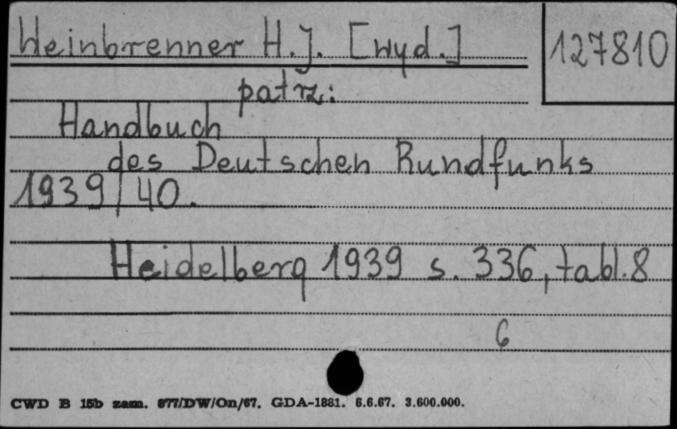 Weinbrenner H.J. [wyd.]
127810
patrz:
Handbuch
des Deutschen Rundfunks
1939/40.
Heidelberg 1939 s. 336, tabl. 8
6
CWD B 15b zam. 877/DW/On/67. GDA-1881. 6.6.67. 3.600.000.